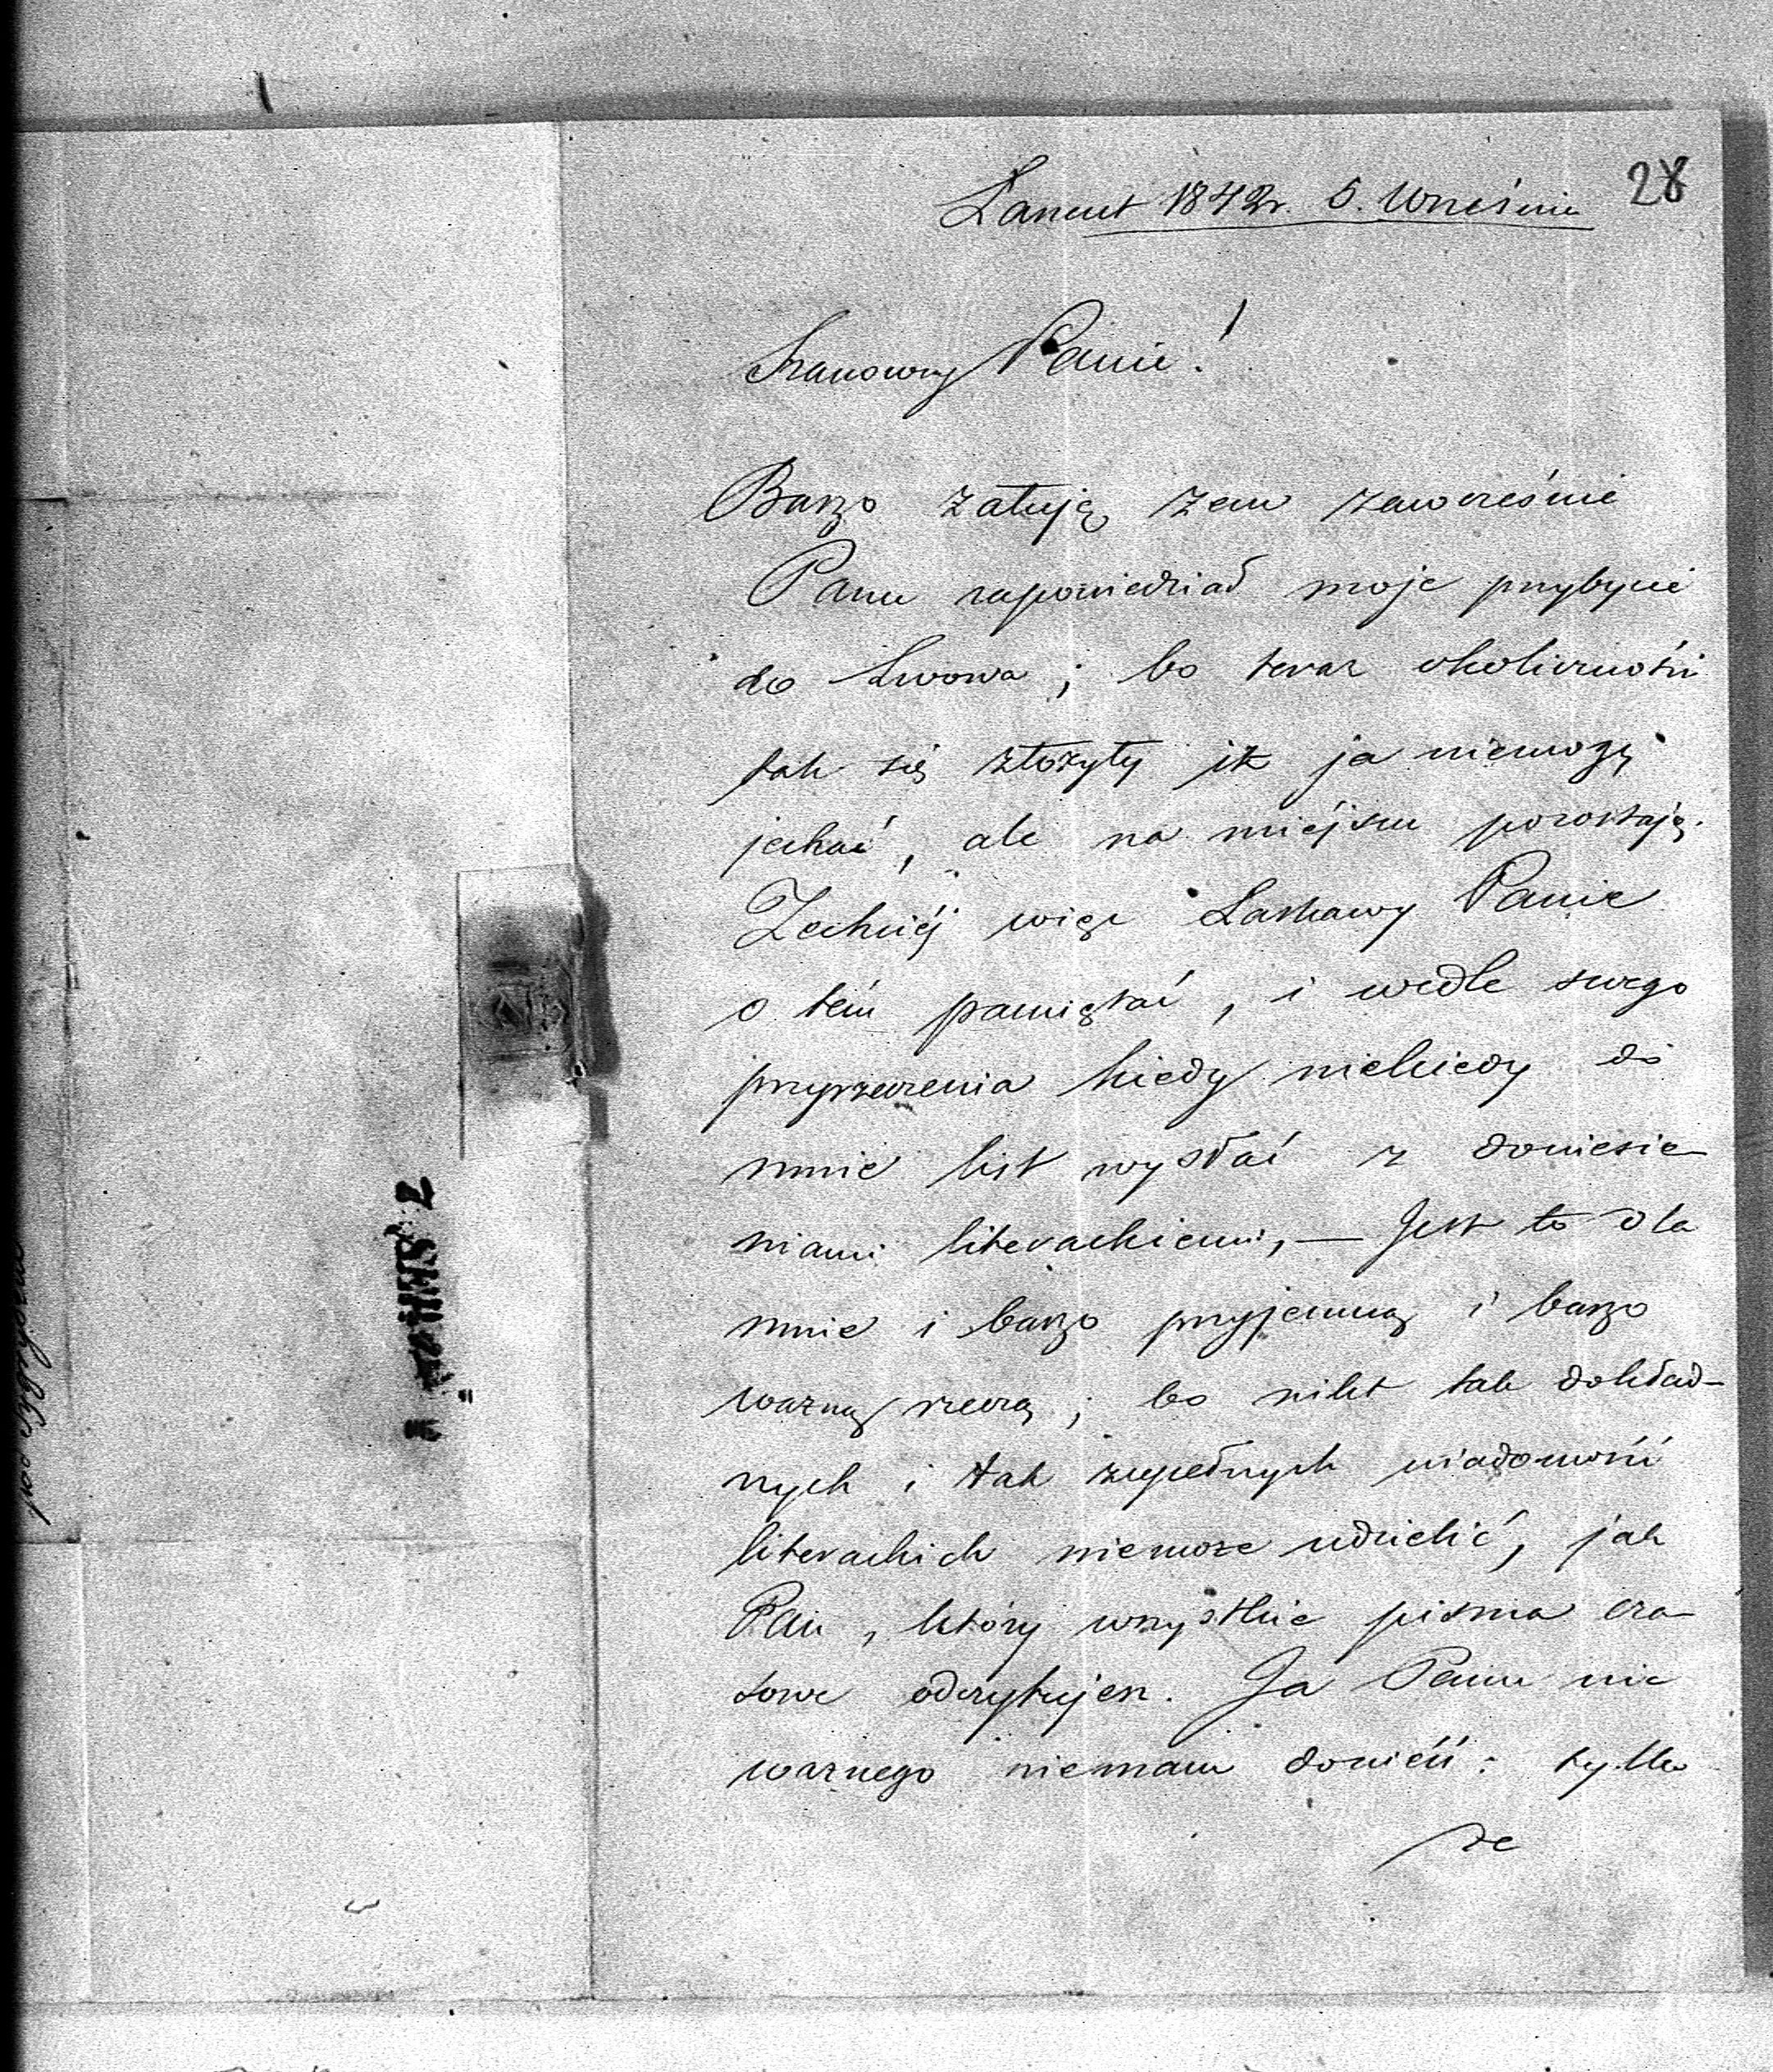 28
Łancut 1842r. 5. Wrześnie
Szanowny Panie!
Barzo żałuję żem zawcześnie
Panu zapowiedział moje przybycie
do Lwowa; bo teraz okoliczności
tak się złożyły iż ja niemogę
jechać, ale na miéjscu pozostaję.
Zechciéj więc Łaskawy Panie
o tém pamiętać, i wedle swego
przyrzeczenia kiedy niekiedy do
mnie list wysłać z doniesie-
niami literackiemi, — Jest to dla
mnie i barzo przyjemną i barzo
ważną rzeczą; bo nikt tak dokład-
nych i tak zupełnych wiadomości
literackich niemoże udzielić, jak
Pan, który wszystkie pisma cza-
sowe odczytujesz. Ja Panu nic
ważnego niemam donieść: tylko
że